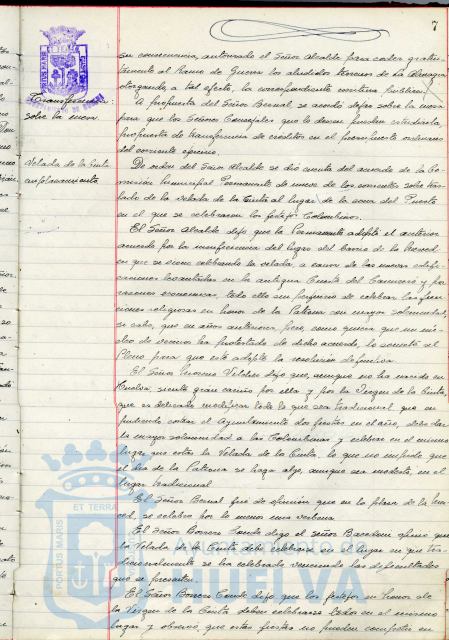 7
su consecuencia, autorizado el Señor Alcalde para ceder gratui-
tamente al Ramo de Guerra los aludidos terrenos de la
otorgando a tal efecto, la correspondiente escritura pública.
Transferencia
sobre la mesa
A propuesta del Señor Bernal, se acordó dejar sobre la mesa
para que los Señores Concejales que lo deseen puedan estudiarla,
propuesta de transferencia de créditos en el presupuesto ordinario
del corriente ejercicio.
Velada de la Cinta
emplazamiento
De orden del Señor Alcalde se dió cuenta del acuerdo de la Co-
misión Municipal Permanente de nueve de los corrientes sobre tras-
lado de la velada de la Cinta al lugar de la zona del Puerto
en el que se celebraron los festejos Colombinos.
El Señor Alcalde dijo que la Permanente adoptó el anterior
acuerdo por la insuficiencia del lugar del barrio de la Merced
en que se viene celebrando la velada, a causa de las nuevas edifi-
caciones levantadas en la antigua Huerta del y por
razones económicas, todo ello sin perjuicio de celebrar las fun-
ciones religiosas en honor de la Patrona con mayor solemnidad,
si cabe, que en años anteriores, pero, como quiera que un nú-
cleo de vecinos ha protestado de dicho acuerdo, lo somete al
Pleno para que este adopte la resolución definitiva.
El Señor Moreno Vilches dijo que, aunque no ha nacido en
Huelva, siente gran cariño por ella y por la Virgen de la Cinta,
que es delicado modificar todo lo que sea tradicional, que no
pudiendo costear el Ayuntamiento dos fiestas en el año, debe dar-
se mayor solemnidad a las Colombinas y celebrar en el mismo
lugar que estas la Velada de la Cinta, lo que no impide que
el día de la Patrona se haga algo, aunque sea modesto, en el
lugar tradicional.
El Señor Bernal fué de opinión que en la plaza de la Mer-
ced, se celebre por lo menos una verbena.
El Señor digo el Señor opinó que
la Velada de la Cinta debe celebrarse en el lugar en que tra-
dicionalmente se ha celebrado venciendo las dificultades
que se presentan.
El Señor Conde dijo que los festejos en honor de
la Virgen de la Cinta deben celebrarse todos en el mismo
lugar y observa que estas fiestas no pueden competir en
PORTUS MARIS ET TERRAE
AYUNTAMIENTO DE
HUELVA